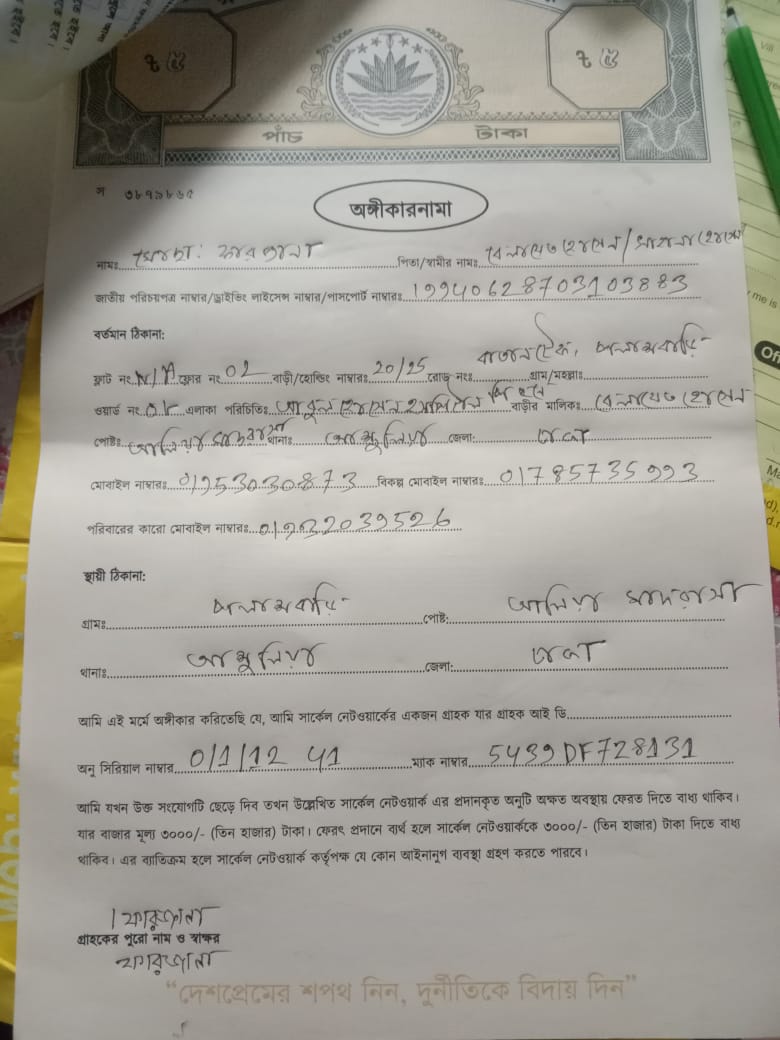 ৳ ৫
৳ ৫
পাঁচ টাকা
স ৩৮৭৯৮৬৫
অঙ্গীকারনামা
নামঃ মোছা: ফারজানা পিতা/স্বামীর নামঃ বেলায়েত হোসেন/
জাতীয় পরিচয়পত্র নাম্বার/ড্রাইভিং লাইসেন্স নাম্বার/পাসপোর্ট নাম্বারঃ 19940628703103883
বর্তমান ঠিকানা:
ফ্লাট নং N/A ফ্লোর নং 02 বাড়ী/হোল্ডিং নাম্বারঃ 20/25 রোড় নংঃ গ্রাম/মহল্লাঃ
ওয়ার্ড নং এলাকা পরিচিতিঃ আবুল হোসেন বাড়ীর মালিকঃ বেলায়েত হোসেন
পোষ্টঃ আলিয়া মাদরাসা থানাঃ আশুলিয়া জেলা: ঢাকা
মোবাইল নাম্বারঃ 01953030873 বিকল্প মোবাইল নাম্বারঃ 01785735993
পরিবারের কারো মোবাইল নাম্বারঃ 01932039526
স্থায়ী ঠিকানা:
গ্রামঃ পোষ্ট: আলিয়া মাদরাসা
থানাঃ আশুলিয়া জেলা: ঢাকা
আমি এই মর্মে অঙ্গীকার করিতেছি যে, আমি সার্কেল নেটওয়ার্কের একজন গ্রাহক যার গ্রাহক আই ডি
অনু সিরিয়াল নাম্বার 0/1/12 41 ম্যাক নাম্বার 5439DF728131
আমি যখন উক্ত সংযোগটি ছেড়ে দিব তখন উল্লেখিত সার্কেল নেটওয়ার্ক এর প্রদানকৃত অনুটি অক্ষত অবস্থায় ফেরত দিতে বাধ্য থাকিব।
যার বাজার মূল্য ৩০০০/- (তিন হাজার) টাকা। ফেরৎ প্রদানে ব্যর্থ হলে সার্কেল নেটওয়ার্ককে ৩০০০/- (তিন হাজার) টাকা দিতে বাধ্য
থাকিব। এর ব্যতিক্রম হলে সার্কেল নেটওয়ার্ক কর্তৃপক্ষ যে কোন আইনানুগ ব্যবস্থা গ্রহণ করতে পারবে।
ফারজানা
গ্রাহকের পুরো নাম ও স্বাক্ষর
ফারজানা
“দেশপ্রেমের শপথ নিন, দুর্নীতিকে বিদায় দিন”